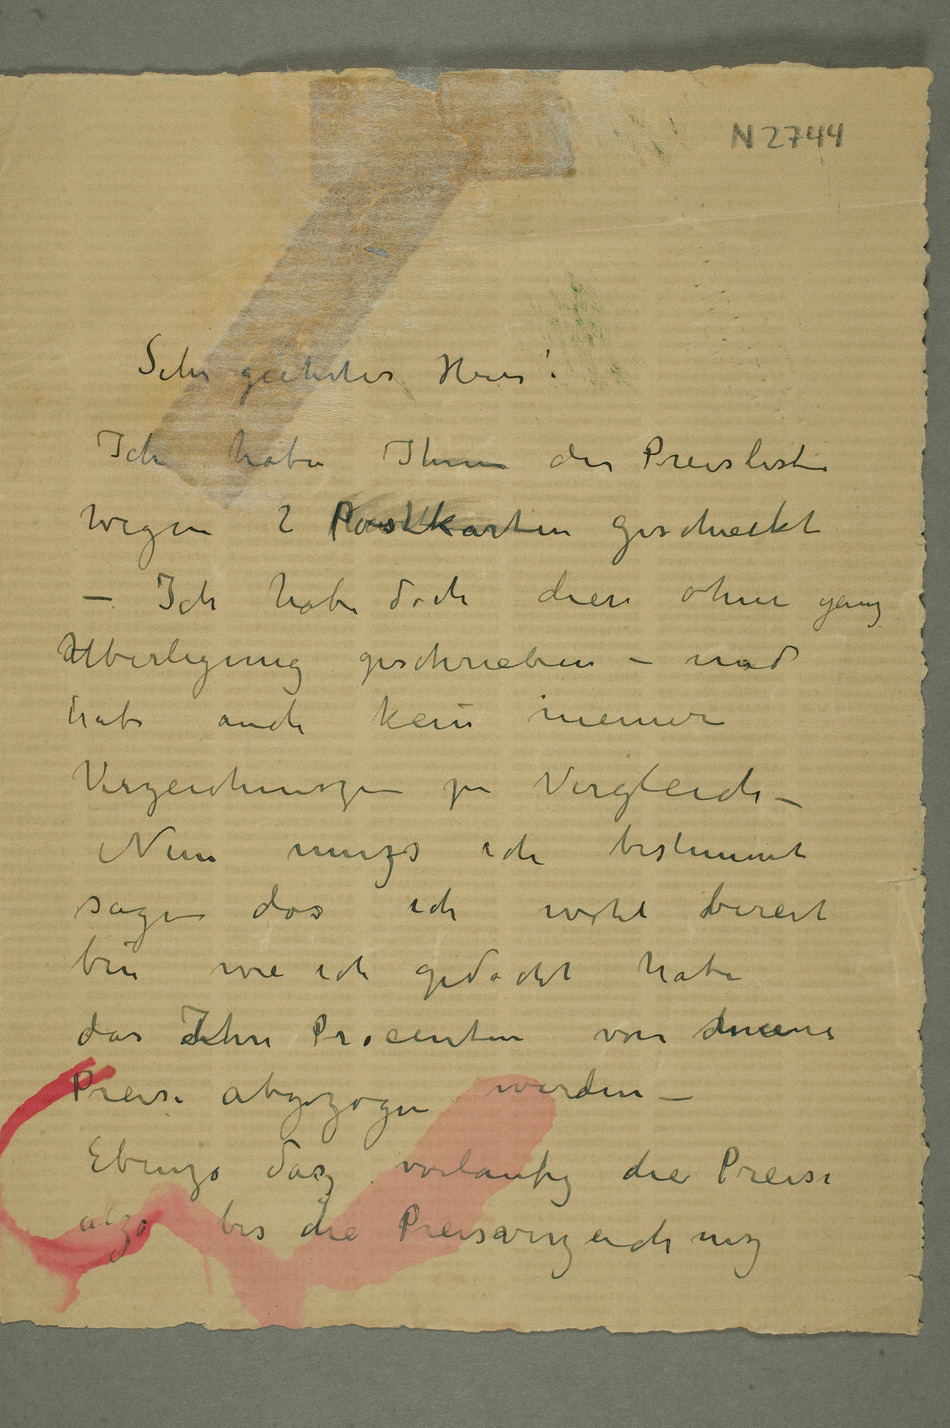 N 2744
Sehr geehrter Herr!
Ich habe Ihnen der Preisliste
wegen 2 Postkarten geschieckt
– Ich habe doch dies ohne ganz
Uberlegung geschrieben – und
habe auch kein meiner
Verzeichniszen zu Vergleich –
Nun muszs ich bestimmt
sagen das ich wohl bereit
bin wie ich gedacht habe
das Ihre Procenten von
Preise abgezogen werden –
Ebenzo dasz vorläufig die Preise
alzo bis die Preisverzeichnisz